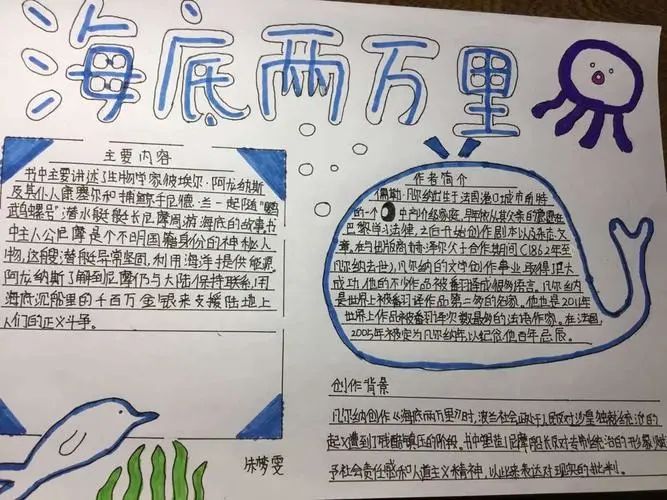 海底两万里
主要内容
书中主要讲述了生物学家彼埃尔·阿龙纳斯
及其仆人康塞尔和捕鲸手尼德·兰一起随"鹦
鹉螺号"潜水艇艇长尼摩周游海底的故事书
中主人公尼摩是个不明国籍身份的神秘人
物,这艘潜艇异常坚固,利用海洋提供能源,
阿龙纳斯了解到尼摩仍与大陆保持联系,用
海底沉船里的千百万金银来支援陆地上
人们的正义斗争。
作者简介
儒勒·凡尔纳出生于法国港口城市南特
的一个中产阶级家庭,早年依从其父亲的意愿在
巴黎学习法律,之后开始创作剧本以及杂志文
章,在与出版商赫泽尔父子合作期间(1862年至
凡尔纳去世),凡尔纳的文学创作事业取得了巨大
成功,他的不少作品被翻译成很多语言。凡尔纳
是世界上被翻译作品第二多的名家,他也是2011年
世界上作品被翻译次数最多的法语作家。在法国,
2005年被定为凡尔纳年,以纪念他百年忌辰。
创作背景
凡尔纳创作《海底两万里》时,波兰社会正处于人民反对沙皇独裁统治的
起义遭到了残酷镇压的阶段。书中塑造了尼摩船长反对专制统治的形象,赋
予社会责任感和人道主义精神,以此来表达对现实的批判。
朱梦雯